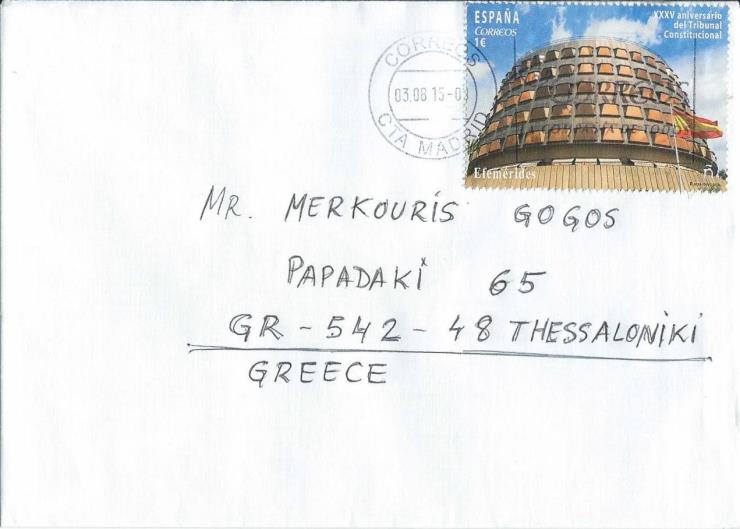 ESPAÑA
CORREOS
1€
XXXV aniversario
del Tribunal
Constitucional
Efemérides
CORREOS
03.08 15-0
CTA MADRID
MR. MERKOURIS GOGOS
PAPADAKI 65
GR - 542 - 48 THESSALONIKI
GREECE